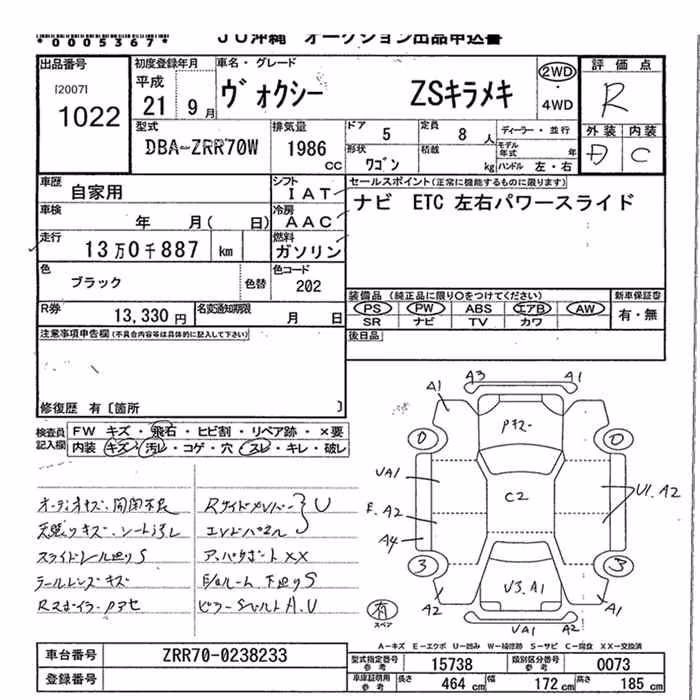 *0005367*
JU沖縄 オークション出品申込書
出品番号
[2007]
1022
初度登録年月
平成
21 9月
車名・グレード
ヴォクシー ZSキラメキ
2WD
・
4WD
評価点
R
外装 内装
D C
型式
DBA-ZRR70W
排気量
1986 CC
ドア 5
定員 8 人
ディーラー・並行
形状 ワゴン
積載 kg
モデル年式 年
ハンドル 左・右
車歴 自家用
シフト IAT
セールスポイント(正常に機能するものに限ります)
ナビ ETC 左右パワースライド
車検 年 月( 日)
冷房 AAC
走行 13万0千887 km
燃料 ガソリン
色 ブラック 色替
色コード 202
装備品 (純正品に限り○をつけてください)
PS PW ABS エアB AW
SR ナビ TV カワ
新車保証書
有・無
R券 13,330円
名変通知期限 月 日
注意事項申告欄(不具合内容等は具体的に記入して下さい)
後日品
修復歴 有〔箇所 〕
検査員記入欄
FW キズ・飛石・ヒビ割・リペア跡・×要
内装 キズ・汚レ・コゲ・穴・スレ・キレ・破レ
オーディオキズ・開閉不良
天張りキズ・シート汚レ
スライドレール廻りS
テールレンズキズ
Rスポイラー
Rサイドメンバー
エンドパネル
U
XX
下廻りS
A.U
A3 A1
A1 A1
0 0
UA1
C2
U1.A2
E.A2
A4
3 3
U3.A1
A2 A1
UA1 A2
有
スペア
A-キズ E-エクボ U-凹み W-補修跡 S-サビ C-腐食 XX-交換済
車台番号 ZRR70-0238233
登録番号
型式指定番号 参考 15738
類別区分番号 参考 0073
車庫証明用 参考 長さ 464cm 幅 172cm 高さ 185cm